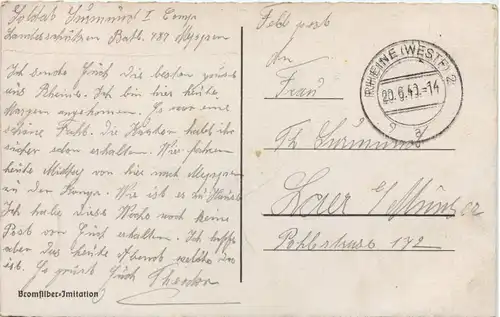 Soldat Surmund I Comp
Landesschützen Batl. 787 Meppen
Ich sende Euch die besten Grüße
aus Rheine. Ich bin hier heute
Morgen angekommen. Es war eine
schöne Fahrt. Die Karten habt ihr
sicher schon erhalten. Wir fahren
heute Mittag von hier nach Meppen
zu der Komp. Wie ist es zu Hause
Ich habe diese Woche noch keine
Post von Euch erhalten. Ich hoffe
aber das heute Abend welche da
ist. Es grüßt Euch Theodor
Bromsilber-Imitation
Feldpost
An
Frau
Th Surmund
Laer b/Münster
Pohlstrasse 172
RHEINE (WESTF) 2
20.6.40.-14
a